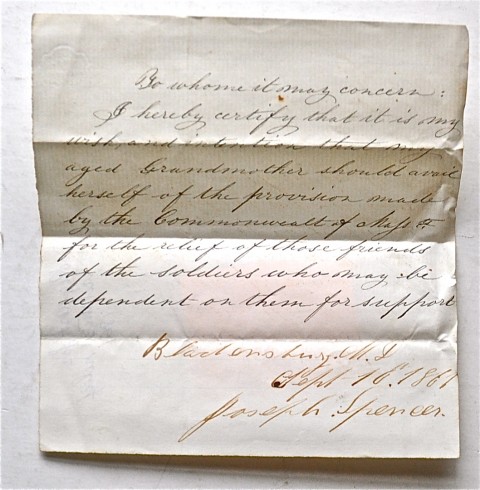 To whome it may concern:
I hereby certify that it is my
wish, and intention that my
aged Grandmother should avail
herself of the provision made
by the Commonwealt of Mass &c
for the relief of those friends
of the soldiers who may be
dependent on them for support
Bladensburg, M.D
Sept 16. 1861
Joseph Spencer.